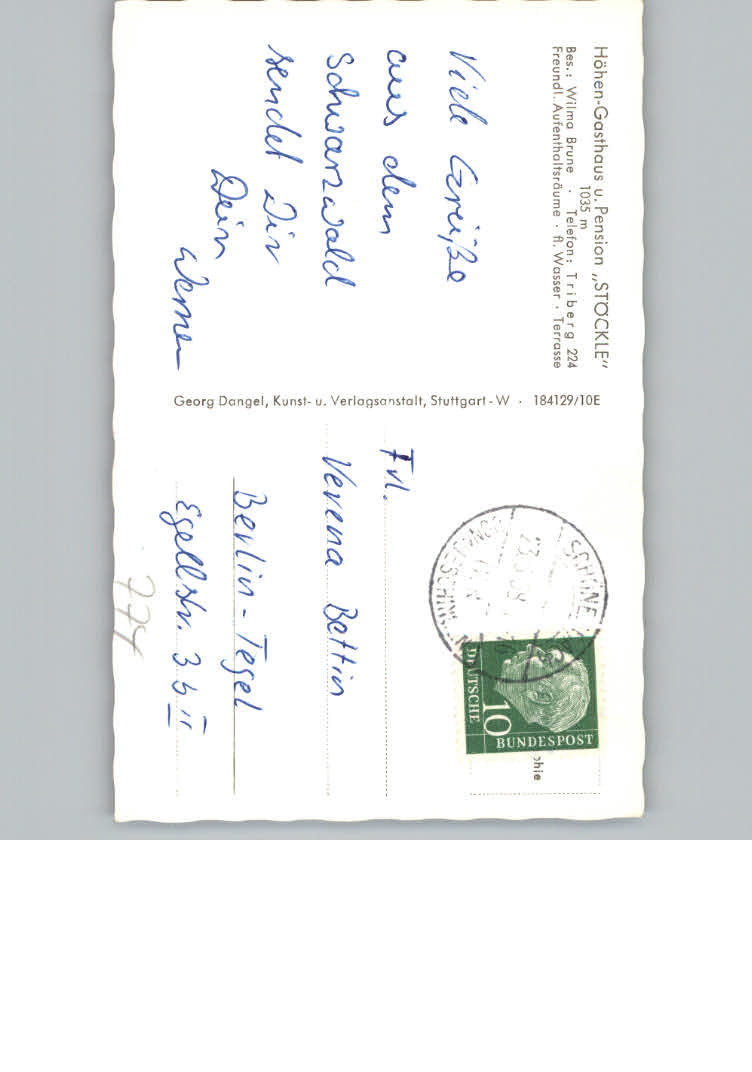 Höhen-Gasthaus u. Pension „STÖCKLE"
1035 m
Bes.: Wilma Brune · Telefon: Triberg 224
Freundl. Aufenthaltsräume · fl. Wasser · Terrasse
Viele Grüße
aus dem
Schwarzwald
sendet Dir
Dein
Werner
Georg Dangel, Kunst- u. Verlagsanstalt, Stuttgart-W · 184129/10E
DEUTSCHE
10
BUNDESPOST
phie
Frl.
Verena Bettin
Berlin-Tegel
Egellstr. 3b II
774